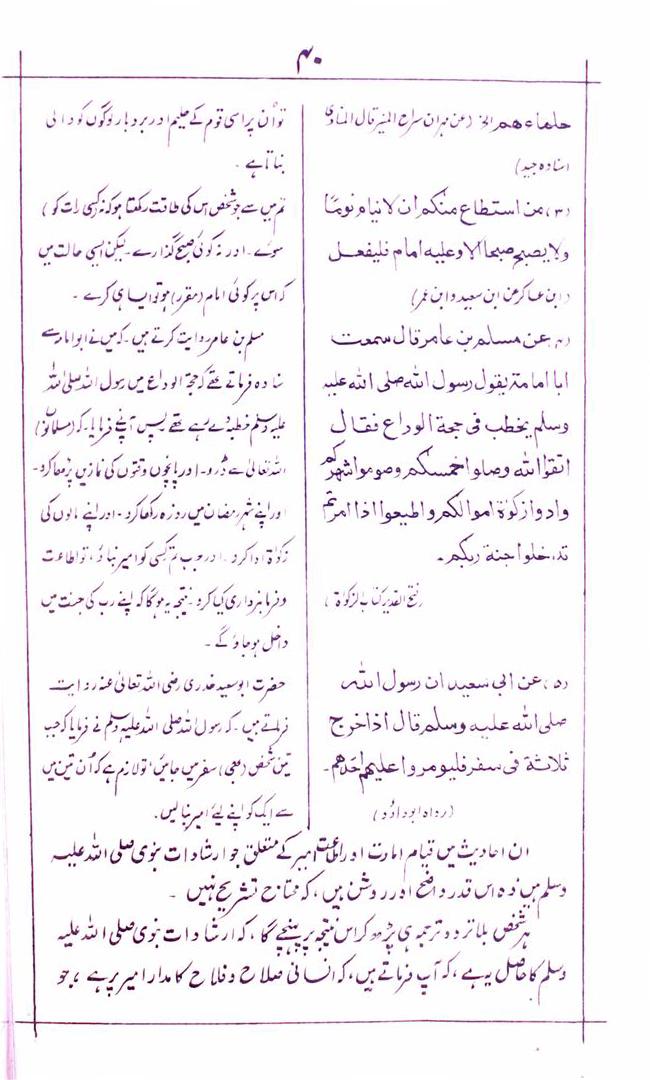 ۴۰
حلماءھم الخ (عن مہران سراج المنیر قال المناوی
اسنادہ جید)
(۳) من استطاع منکم ان لا ینام نومًا
ولا یصبح صبحا الا وعلیہ امام فلیفعل
(ابن عساکر عن ابن سعید و ابن عمر)
(۴) عن مسلم بن عامر قال سمعت
ابا امامۃ یقول رسول اللہ صلی اللہ علیہ
وسلم یخطب فی حجۃ الوداع فقال
اتقوا اللہ وصلوا خمسکم وصوموا شھرکم
وادوا زکوٰۃ اموالکم واطیعوا اذا امرتم
تدخلوا جنۃ ربکم۔
(فتح القدیر کتاب الزکوٰۃ)
(۵) عن ابی سعید ان رسول اللہ
صلی اللہ علیہ وسلم قال اذا خرج
ثلاثۃ فی سفر فلیومروا علیھم احدھم۔
(رواہ ابوداؤد)
تو اُن پر اسی قوم کے حلیم اور بردبار لوگوں کو والی
بناتا ہے ۔
تم میں سے جو شخص اس کی طاقت رکھتا ہو کہ نہ (کسی رات کو)
سوئے۔ اور نہ کوئی صبح گذارے۔ لیکن ایسی حالت میں
کہ اس پر کوئی امام (مقرر) ہو تو ایسا ہی کرے ۔
مسلم بن عامر روایت کرتے ہیں ۔ کہ میں نے ابو امامہ سے
سنا وہ فرماتے تھے کہ حجۃ الوداع میں رسول اللہ صلی اللہ
علیہ وسلم خطبہ دے رہے تھے پس آپ نے فرمایا۔ کہ (مسلمانو)
اللہ تعالیٰ سے ڈرو۔ اور پانچوں وقتوں کی نمازیں پڑھا کرو۔
اور اپنے شہر رمضان میں روزہ رکھا کرو۔ اور اپنے مالوں کی
زکوٰۃ ادا کرو۔ اور جب تم کسی کو امیر بناؤ، تو اطاعت
و فرمانبرداری کیا کرو۔ نتیجہ یہ ہوگا کہ اپنے رب کی جنت میں
داخل ہو جاؤ گے ۔
حضرت ابوسعید خدری رضی اللہ تعالیٰ عنہ روایت
فرماتے ہیں۔ کہ رسول اللہ صلی اللہ علیہ وسلم نے فرمایا کہ جب
تین شخص (بھی) سفر میں جائیں، تو لازم ہے کہ اُن تین میں
سے ایک کو اپنے لیے امیر بنالیں۔
ان احادیث میں قیام امارت اور اطاعت امیر کے متعلق جو ارشادات نبوی صلی اللہ علیہ
وسلم ہیں وہ اس قدر واضح اور روشن ہیں، کہ محتاج تشریح نہیں ۔
ہر شخص بلا تردد ترجمہ ہی پڑھ کر اس نتیجہ پر پہنچے گا ، کہ ارشادات نبوی صلی اللہ علیہ
وسلم کا حاصل یہ ہے ، کہ آپ فرماتے ہیں، کہ انسانی صلاح و فلاح کا مدار امیر پر ہے ، جو